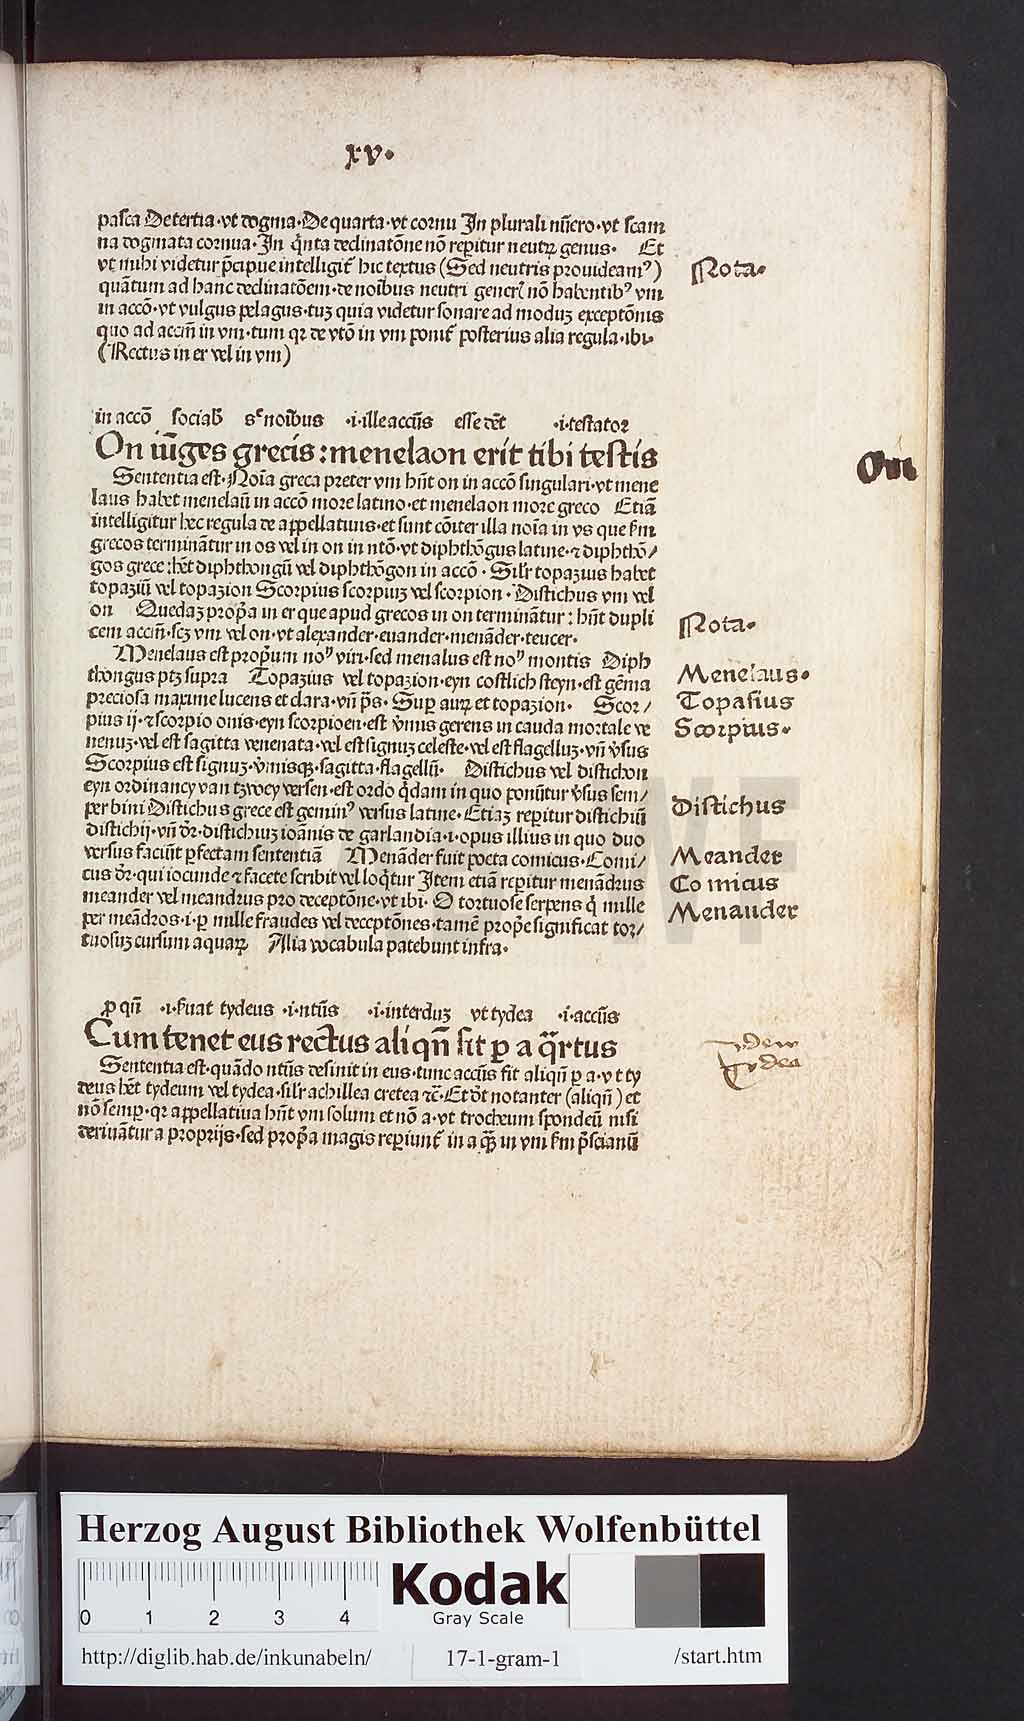 xv.
pasca De tertia·vt dogma·De quarta·vt cornu In plurali nūero·vt scam
na dogmata cornua·In q̄nta declinatōne nō reꝑitur neutꝝ genus· Et
vt mihi videtur p̄cipue intelligit᷑ hic textus (Sed neutris prouideamꝰ)
Nota·
quātum ad hanc declinatōem·de noībus neutri gener̄ nō habentibꝰ vm
in accō·vt vulgus pelagus·tuꝫ quia videtur sonare ad moduꝫ exceptōnis
quo ad accm̄ in vm·tum qꝛ de vtō in vm ponit᷑ posterius alia regula·ibi·
(Rectus in er vel in vm)
in accō sociab̄ sᶜ noībus ·i·ille accūs esse dēt ·i·testator
On iūges grecis:menelaon erit tibi testis
On
Sententia est·Noīa greca preter vm hn̄t on in accō singulari·vt mene
laus habet menelaū in accō more latino·et menelaon more greco Etiā
intelligitur hec regula de appellatiuis·et sunt cōiter illa noīa in vs que ẜm
grecos terminātur in os vel in on in ntō·vt diphthōgus latine·⁊ diphthō/
gos grece:hēt diphthongū vel diphthōgon in accō·Silr̄ topazius habet
topaziū vel topazion Scorpius scorpiuꝫ vel scorpion·Distichus vm vel
on Quedaꝫ propa̅ in er que apud grecos in on terminātur:hn̄t dupli
Nota·
cem accm̄·scꝫ vm vel on·vt alexander·euander·menāder·teucer·
Menelaus est propͥum noᵛ viri·sed menalus est noᵛ montis Diph
Menelaus·
thongus ptꝫ supra Topazius vel topazion·eyn costlich steyn·est gēma
Topasius
preciosa maxime lucens et clara·vn̄ p̄s·Suꝑ auꝝ et topazion· Scor/
pius ij·⁊ scorpio onis·eyn scorpioen·est v̄mis gerens in cauda mortale ve
Scorpius·
nenuꝫ·vel est sagitta venenata·vel est signuꝫ celeste·vel est flagelluꝫ·vn̄ v̄sus
Scorpius est signuꝫ·v̄misqꝫ·sagitta·flagellū· Distichus vel distichon
eyn ordinancy van tzwey versen·est ordo q̄dam in quo ponūtur v̄sus sem/
Distichus
per bini Distichus grece est geminꝰ versus latine·Etiaꝫ reꝑitur distichiū
distichij·vn̄ dr̄·distichiuꝫ ioānis de garlandia·i·opus illius in quo duo
versus faciūt ꝑfectam sententiā Menāder fuit poeta comicus·Comi/
Meander
cus dr̄·qui iocunde ⁊ facete scribit vel loq̄tur Item etiā reꝑitur menādrus
Comicus
meander vel meandrus pro deceptōne·vt ibi·O tortuose serpens q̄ mille
Menander
per meādros·i·ꝑ mille fraudes vel deceptōnes·tamē prope̅ significat tor/
tuosuꝫ cursum aquaꝝ Alia vocabula patebunt infra·
ꝓ qn̄ ·i·ẜuat tydeus ·i·ntūs ·i·interduꝫ vt tydea ·i·accūs
Cum tenet eus rectus aliqn̄ fit ꝑ a q̄rtus
Sententia est·quādo ntūs desinit in eus·tunc accūs fit aliqn̄ ꝑ a·vt ty
tydea
deus hēt tydeum vel tydea·silr̄ achillea cretea ⁊c̄·Et dt̄ notanter (aliqn̄) et
nō semꝑ·qꝛ appellatiua hn̄t vm solum et nō a·vt trocheum spondeū nisi
deriuātur a proprijs·sed propa̅ magis reꝑiunt᷑ in a qꝫ in vm ẜm p̄scianū
Herzog August Bibliothek Wolfenbüttel
0 1 2 3 4
Kodak
Gray Scale
http://diglib.hab.de/inkunabeln/ 17-1-gram-1 /start.htm